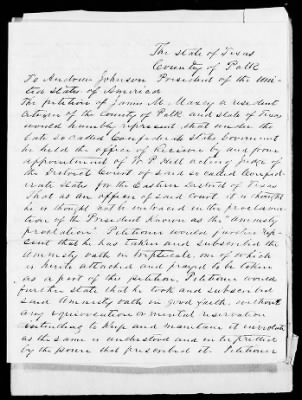 The State of Texas
County of Polk
To Andrew Johnson President of the Uni-
ted States of America
The petition of James M. Maxey a resident
citizen of the County of Polk and state of Texas
would humbly represent that under the
late so called Confederate States Government
he held the office of Receiver by and from
appointment of W. P. Hill acting Judge of
the District Court of said so called Confed-
erate States for the Eastern District of Texas
That as an officer of said Court it is thought
he is not embraced in the proclama-
tion of the President known as the "amnesty
proclamation" Petitioner would further repre-
sent that he has taken and subscribed the
Amnesty oath in triplicate, one of which
is herewith attached and prayed to be taken
as a part of this petition, Petitioner would
further state that he took and subscribed
said Amnesty oath in good faith, without
any equivocation or mental reservation
intending to keep and maintain it inviolate
as the same is understood and interpreted
by the power that prescribed it. Petitioner